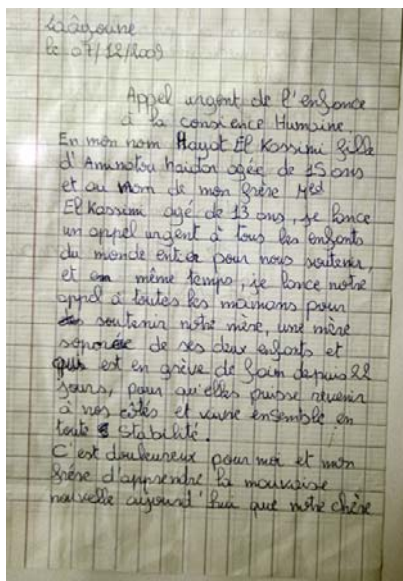 Laâyoune
le 07/12/2009
Appel urgent de l'enfance
à la conscience Humaine
En mon nom Hayat El Kassimi fille
d'Aminatou haidar agée de 15 ans
et au nom de mon frère Med
El Kassimi agé de 13 ans, je lance
un appel urgent à tous les enfants
du monde entier pour nous soutenir,
et en même temps, je lance notre
appel à toutes les mamans pour
soutenir notre mère, une mère
séparée de ses deux enfants et
qui est en grève de faim depuis 22
jours, pour qu'elles puisse revenir
à nos côtés et vivre ensemble en
toute stabilité.
C'est douleureux pour moi et mon
frère d'apprendre la mauvaise
nouvelle aujourd'hui que notre chère